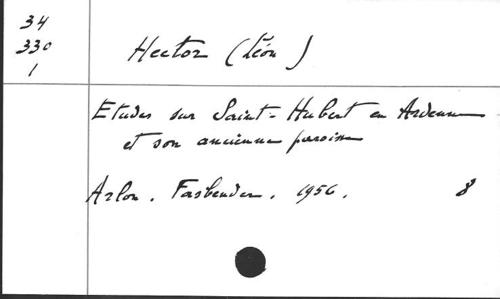 34
330
1
Hector (Léon)
Etudes sur Saint-Hubert en Ardenne
et son ancienne paroisse
Arlon. Fasbender. 1956. 8